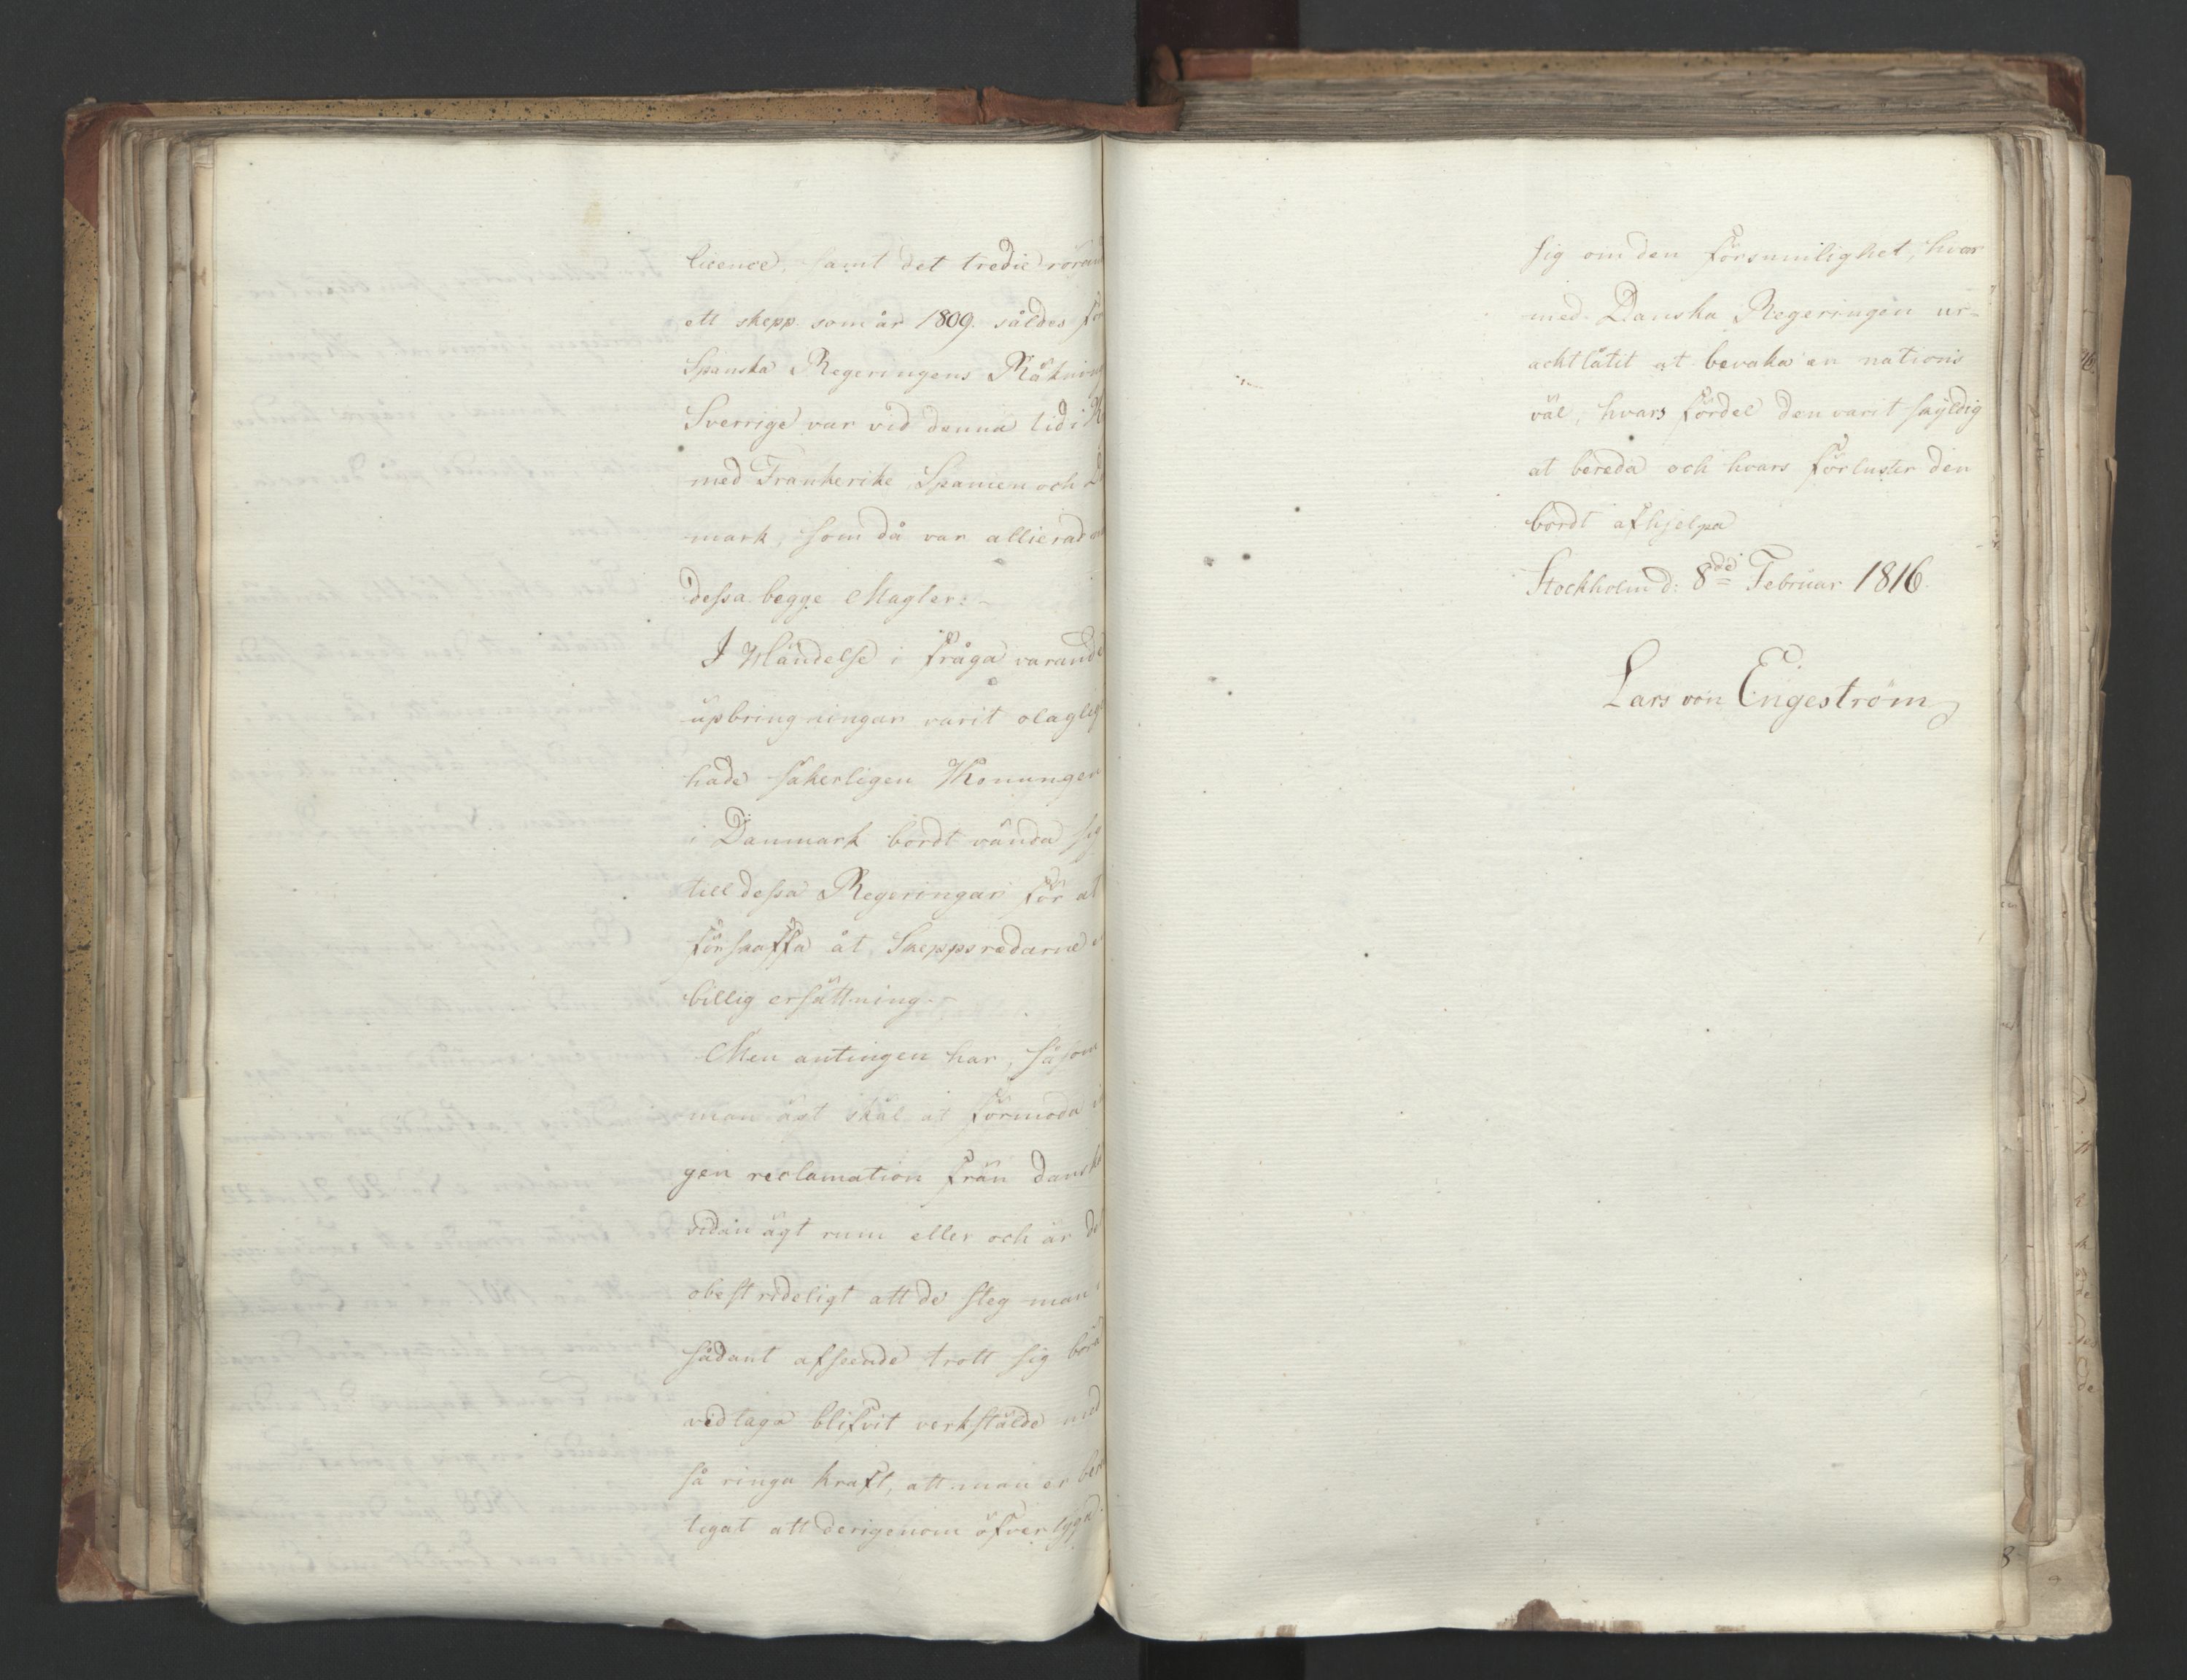 licence, samt det tredie röran
ett skepp som år 1809. såldes för
Spanska Regeringens Räkning
Sverrige var vid denna tid i K
med Frankerike Spanien och D
mark, som då var allierad
dessa begge Magter.-
I Händelse i fråga varande
upbringningar varit olaglig
hade säkerligen Konungen
i Danmark bordt vända sig
till dessa Regeringar för at
förskaffa åt Skeppsredarne
billig ersättning.-
Men antingen har, såsom
man ägt skäl at förmoda
gen reclamation från Danska
sidan ägt rum eller och är de
obestrideligt att de steg man
sådant afseende trott sig böra
vidtaga blifvit verkstälde med
så ringa kraft, att man er
tigat att derigenom öfvertyga
sig om den försumlighet, hvar
med Danska Regeringen ur-
acktlåtit at bevaka en nations
väl, hvars fördel den varit skyldig
at bereda och hvars förluster den
bordt afhjelpa
Stockholm d: 8de Februar 1816.
Lars von Engeström
8